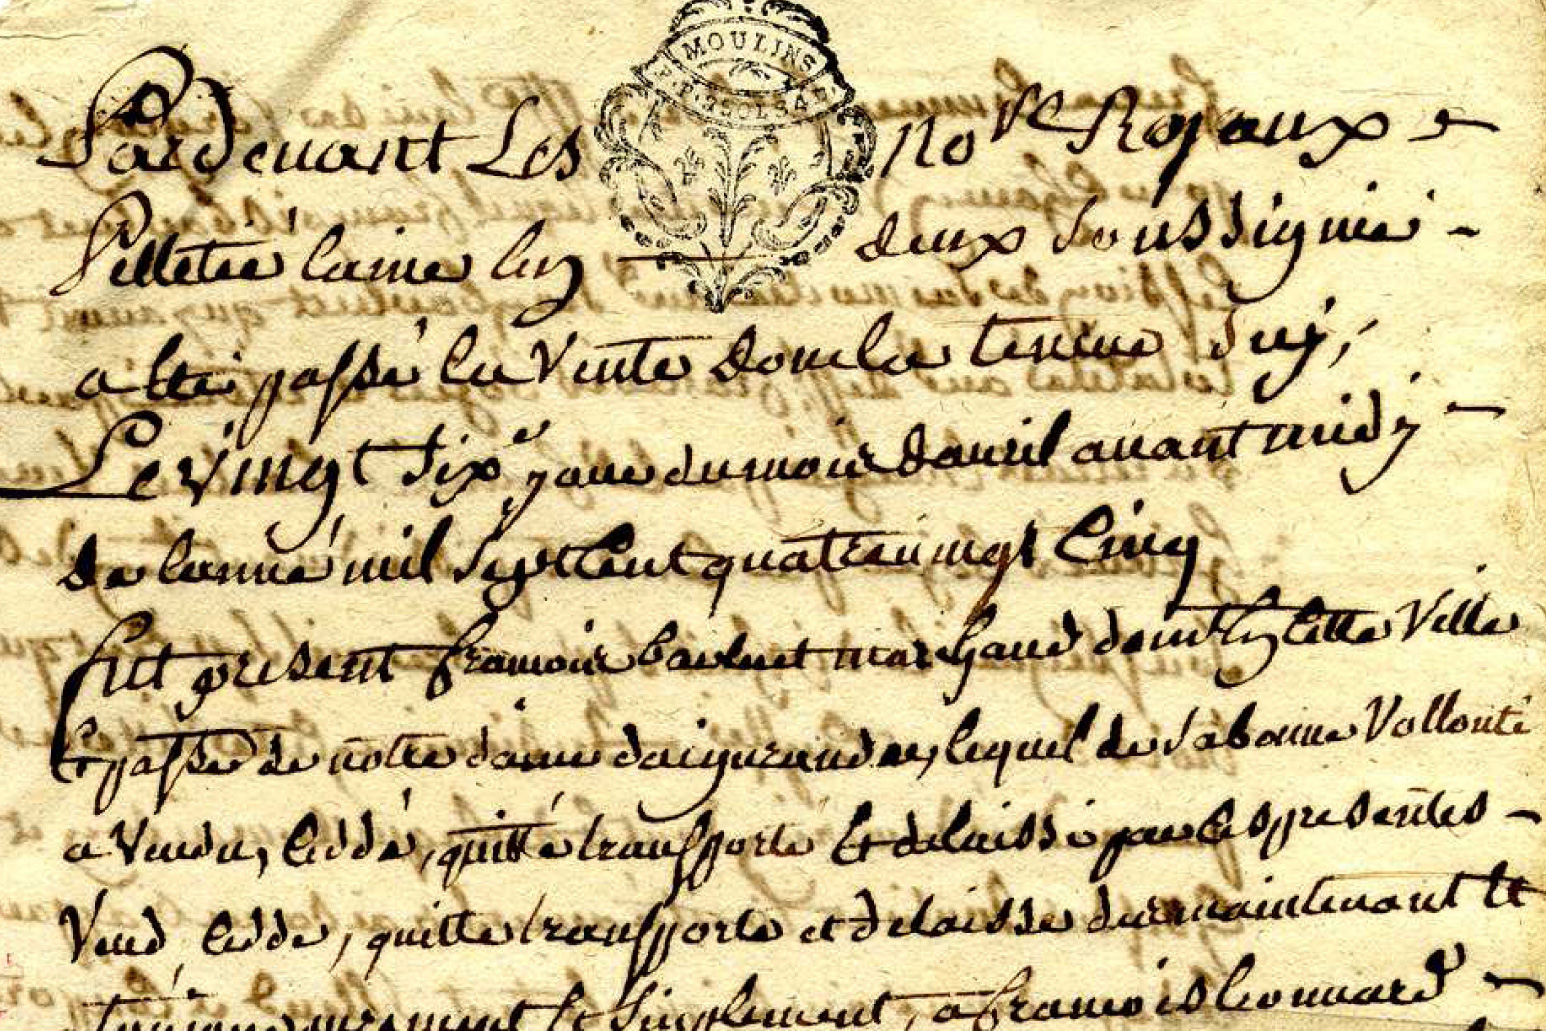 MOULINS
Pardevant Les no.res Royaux
Pelletier laine lun deux Soussignié
a Eté passé la Vente dont la teneur Suy,
Le vingt Six.e jour du mois davril avant midy
de lanné mil Sept Cent quatre vingt Cinq
fut present francois marchand dem.t En Cette Ville
Et parsse de notre dame daigurande, lequel de Sa bonne Vollonté
a Vendu, Ceddé, quitté transporté Et delaissé par Les presentes
Vend, Cedde, quitte transporte et delaisse des maintenant Et
Et Simplement, a francois Leonnard